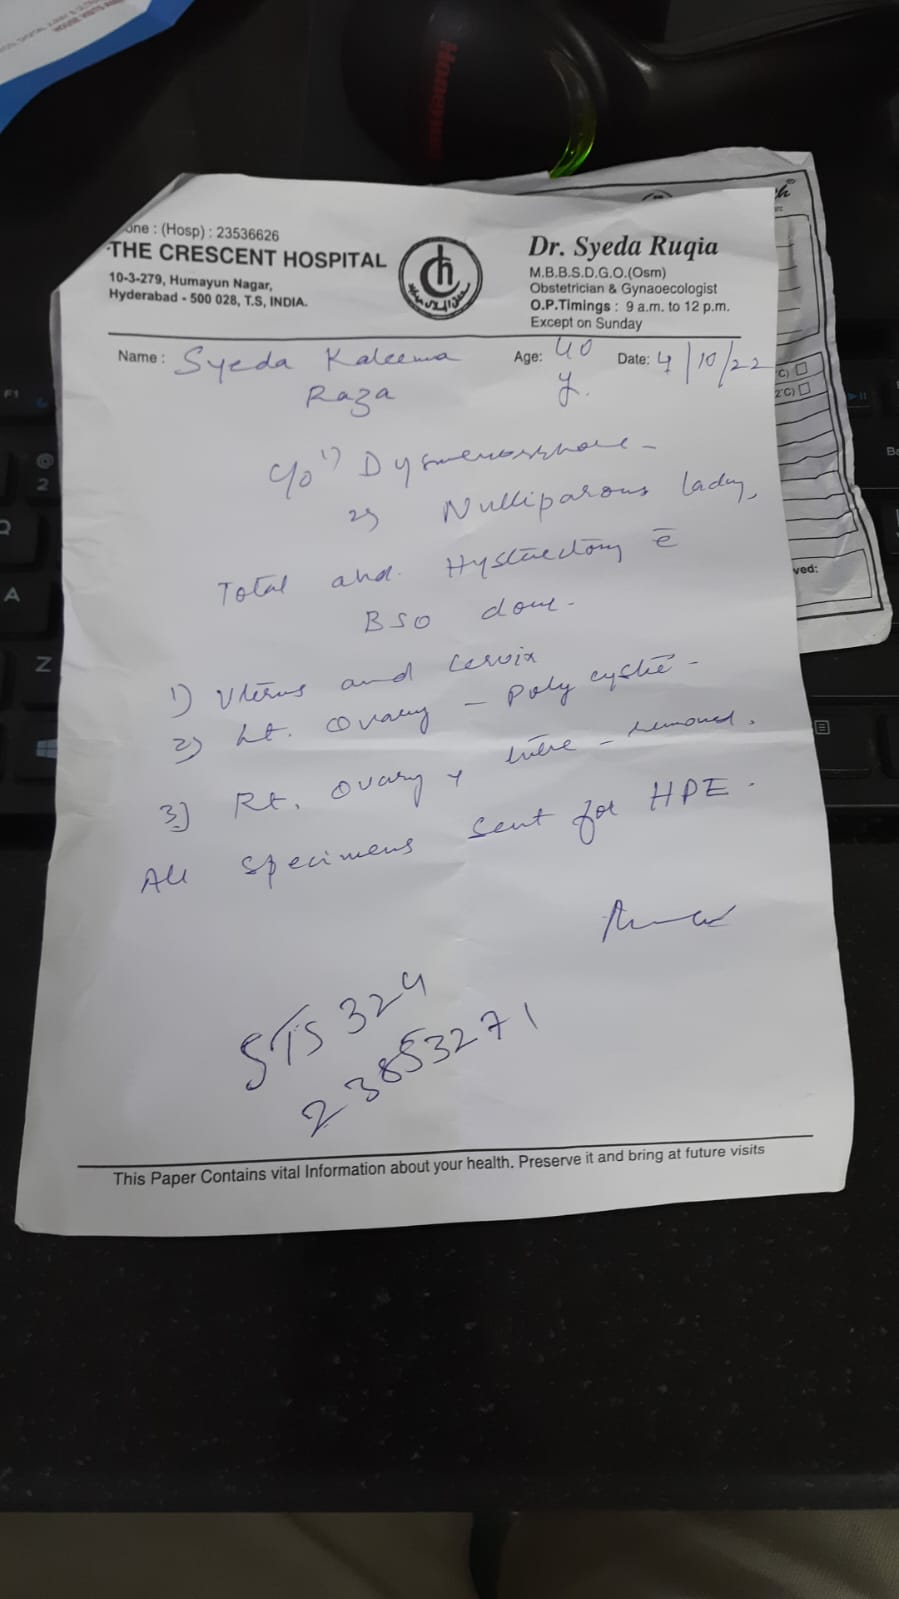 Phone : (Hosp) : 23536626
THE CRESCENT HOSPITAL
10-3-279, Humayun Nagar,
Hyderabad - 500 028, T.S, INDIA.
Dr. Syeda Ruqia
M.B.B.S.D.G.O.(Osm)
Obstetrician & Gynaecologist
O.P.Timings : 9 a.m. to 12 p.m.
Except on Sunday
Name : Syeda Kaleema Age: 40 Date: 4/10/22
Raza y.
c/o 1) Dysmenorrhoea -
2) Nulliparous lady,
Total abd. Hysterectomy c̄
BSO done -
1) Uterus and Cervix
2) Lt. Ovary - Poly cystic -
3) Rt. Ovary + tube - removed.
All specimens sent for HPE.
STS 324
23853271
This Paper Contains vital Information about your health. Preserve it and bring at future visits
Honeywell
ved: